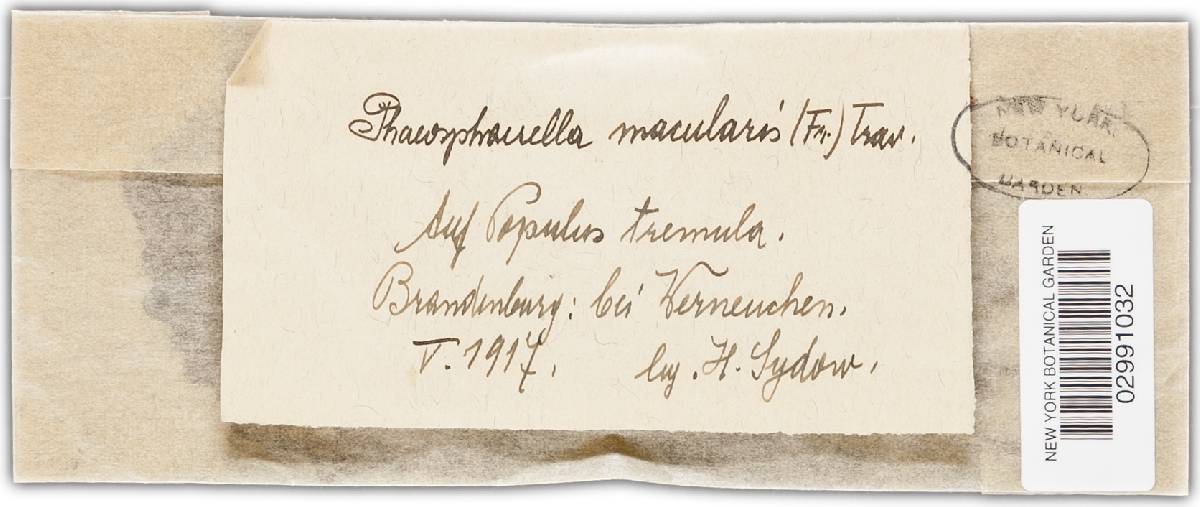 Phaeosphaerella macularis (Fr.) Trav.
Auf Populus tremula.
Brandenburg: bei Werneuchen.
V. 1917. leg. H. Sydow.
NEW YORK
BOTANICAL
GARDEN
NEW YORK BOTANICAL GARDEN
02991032